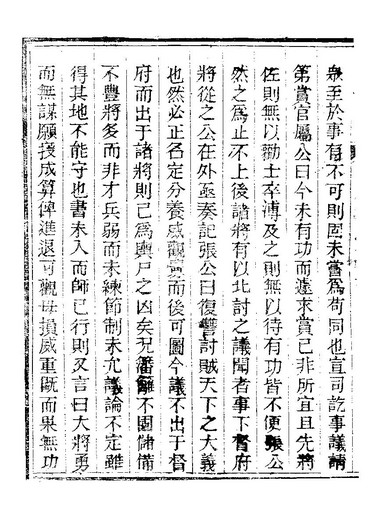 衆至於事有不可則固未嘗爲苟同也宣司訖事議請
第賞官屬公曰今未有功而遽求賞已非所宜且先將
佐則無以勸士卒溥及之則無以待有功皆不便張公
然之爲止不上後諸將有以北討之議聞者事下督府
將從之公在外亟奏記張公曰復讐討賊天下之大義
也然必正名定分養威觀釁而後可圖今議不出于督
府而出于諸將則已爲輿尸之凶矣况藩籬不固儲備
不豐將多而非才兵弱而未練節制未允議論不定雖
得其地不能守也書未入而師已行則又言曰大將勇
而無謀願授成算俾進退可觀毋損威重既而果無功